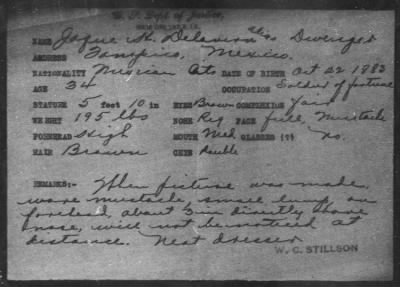 U. S. Dept of Justice,
NAME Jaque M. Dwenger
ADDRESS Tampico, Mexico.
NATIONALITY Mexican Cits DATE OF BIRTH Oct 22 1883
AGE 34 OCCUPATION Soldier of fortune
STATURE 5 feet 10 in EYES Brown COMPLEXION Fair
WEIGHT 195 lbs NOSE Reg FACE full, Mustache
FOREHEAD High MOUTH Med GLASSES ?? no.
HAIR Brown CHIN Double
REMARKS:- When picture was made,
wore mustache, small lump, on
forehead, about 3 in directly above
nose, will not be noticed at
distance. Neat dresser
W. C. STILLSON